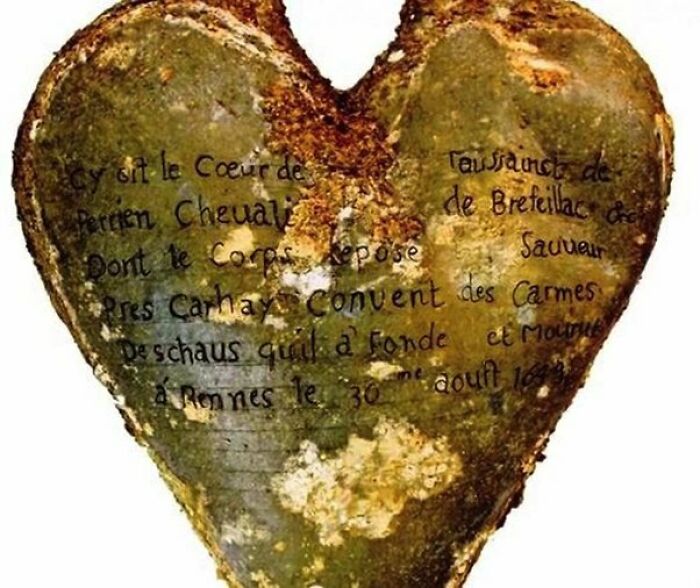 Cy Git le Coeur de Toussainct de
Perrien Cheuali de Brefeillac
Dont le Corps Repose Sauueur
Pres Carhay Convent des Carmes
Deschaus quil a Fondé et Mourut
á Rennes le 30me aoust 1649